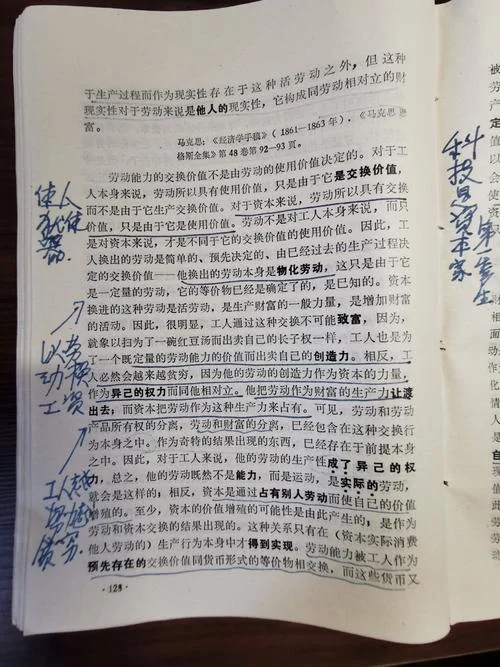 于生产过程而作为现实性存在于这种活劳动之外，但这种
现实性对于劳动来说是他人的现实性，它构成同劳动相对立的财
富。
马克思：《经济学手稿》（1861—1863年），《马克思恩
格斯全集》第48卷第92—93页。
劳动能力的交换价值不是由劳动的使用价值决定的。对于工
人本身来说，劳动所以具有使用价值，只是由于它是交换价值，
而不是由于它生产交换价值。对于资本来说，劳动所以具有交换
价值，只是由于它是使用价值。劳动不是对工人本身来说，而只
是对资本来说，才是不同于它的交换价值的使用价值。因此，工
人换出的劳动是简单的、预先决定的、由已经过去的生产过程决
定的交换价值——他换出的劳动本身是物化劳动，这只是由于它
是一定量的劳动，它的等价物已经是确定了的，是已知的。资本
换进的这种劳动是活劳动，是生产财富的一般力量，是增加财富
的活动。因此，很明显，工人通过这种交换不可能致富，因为，
就象以扫为了一碗红豆汤而出卖自己的长子权一样，工人也是为
了一个既定量的劳动能力的价值而出卖自己的创造力。相反，工
人必然会越来越贫穷，因为他的劳动的创造力作为资本的力量，
作为异己的权力而同他相对立。他把劳动作为财富的生产力让渡
出去，而资本把劳动作为这种生产力来占有。可见，劳动和劳动
产品所有权的分离，劳动和财富的分离，已经包含在这种交换行
为本身之中。作为奇特的结果出现的东西，已经存在于前提本身
之中。因此，对于工人来说，他的劳动的生产性成了异己的权
力，总之，他的劳动既然不是能力，而是运动，是实际的劳动，
就会是这样的；相反，资本是通过占有别人劳动而使自己的价值
增殖的。至少，资本的价值增殖的可能性是由此产生的；是作为
劳动和资本交换的结果出现的。这种关系只有在（资本实际消费
他人劳动的）生产行为本身中才得到实现。劳动能力被工人作为
预先存在的交换价值同货币形式的等价物相交换，而这些货币又
·128·
以劳
动换
工资
工人越
科
技是
资本
家